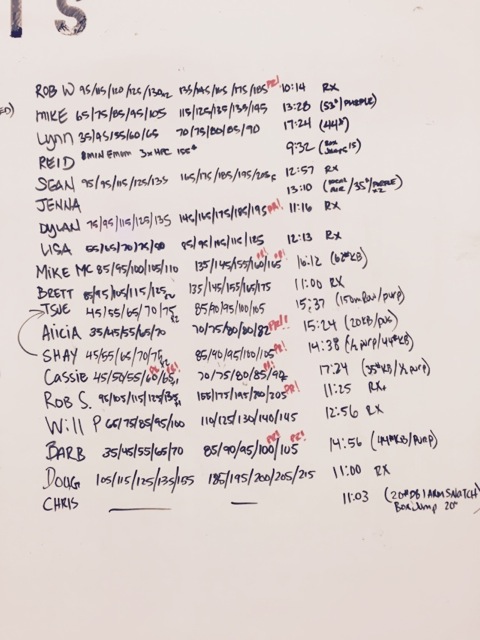 IS
ROB W 95/115/120/125/130x2 135/145/165/175/185 PR! 10:14 RX
MIKE 65/75/85/95/105 115/125/135/135/145 13:28 (53#/PURPLE)
Lynn 35/45/55/60/65 70/75/80/85/90 17:24 (44#)
REID 8MIN Emom 3x HPC 155# 9:32 (Box Jumps 15)
SEAN 95/95/115/125/135 165/175/185/195/205 F 12:57 RX
JENNA 13:10 /35#/PURPLE x2)
DYLAN 75/95/115/125/135 145/165/175/185/195 PR! 11:16 RX
LISA 55/65/70/75/80 85/95/115/115/125 12:13 RX
MIKE MC 85/95/100/105/110 135/145/155/160/165 PR! PR! 16:12 (62#KB)
BRETT 85/95/105/115/125 135/145/155/165/175 11:00 RX
TSUE 45/55/65/70/75 x2 85/90/95/100/105 15:37 (150m Row/purp)
Alicia 35/45/55/65/70 70/75/80/80/82 PR!! 15:24 (20KB/
SHAY 45/55/65/70/75 x2 85/90/95/100/105 PR! 14:38 purp/44#KB)
Cassie 45/50/55/60/65 PR! PR! 70/75/80/85/90 17:24 (35#KB/
ROB S. 95/105/115/125/135 155/175/195/200/205 PR! 11:25 RX+
Will P 65/75/85/95/100 110/125/130/140/145 12:56 RX
BARB 35/45/55/65/70 85/90/95/100/105 PR! PR! 14:56 (44#KB/PURP)
DOUG 105/115/125/135/155 185/195/200/205/215 11:00 RX
CHRIS 11:03 (20#DB 1 ARM SNATCH
Box Jump 20"